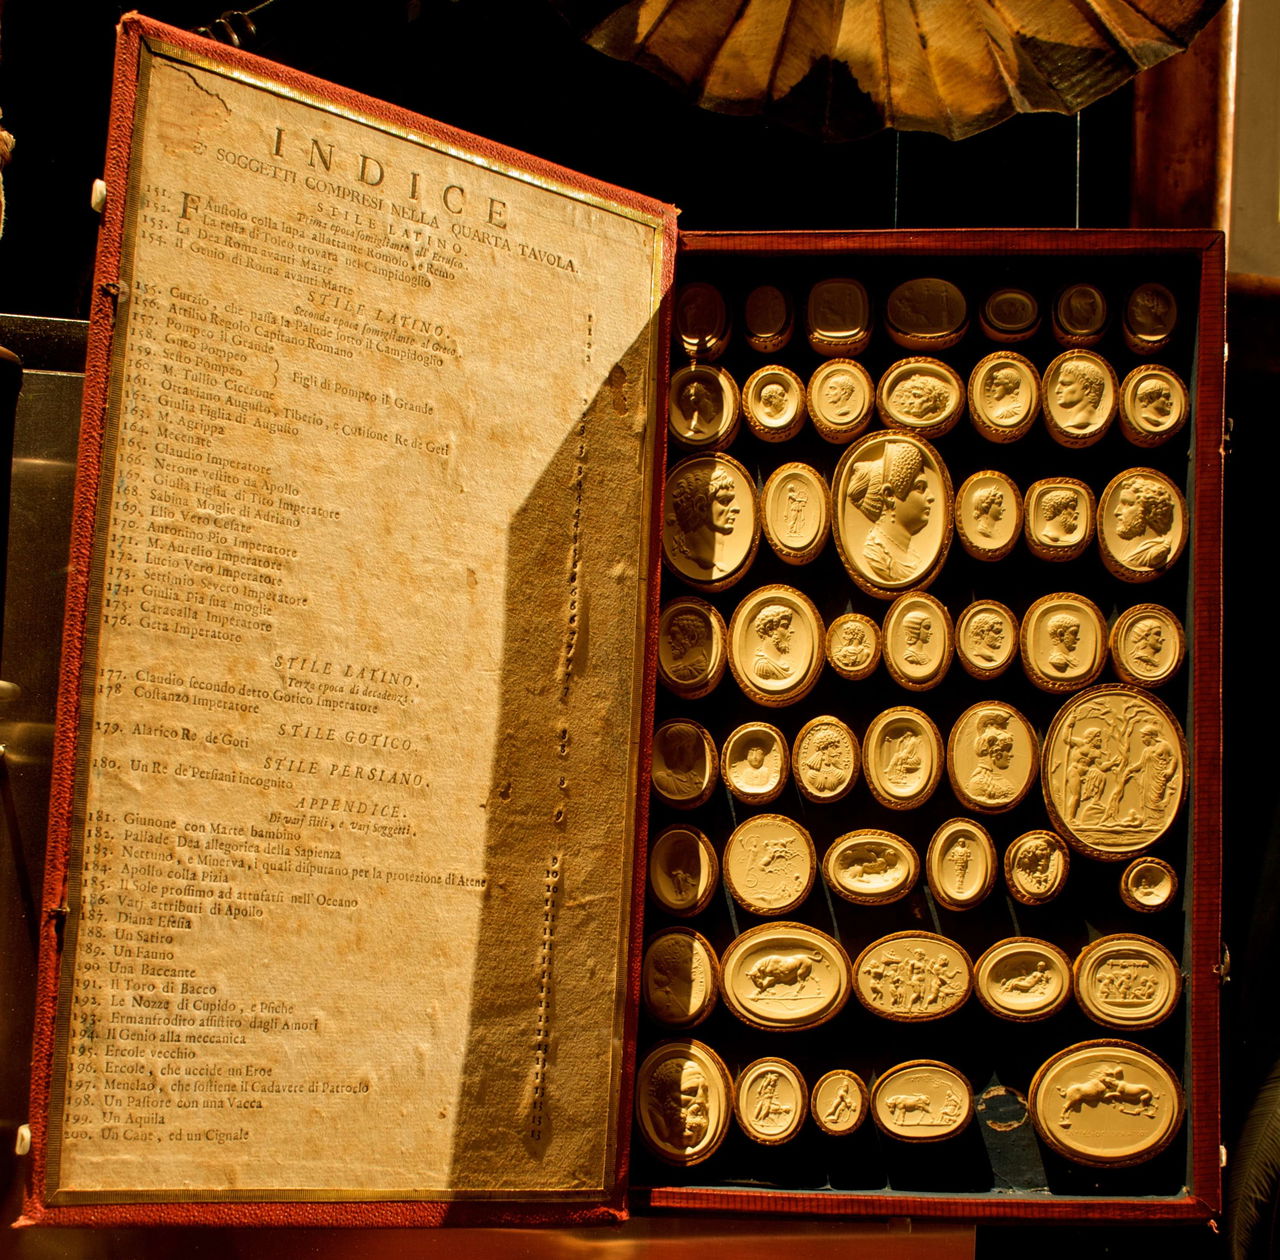 INDICE
E' SOGGETTI COMPRESI NELLA QUARTA TAVOLA.
STILE LATINO.
Prima epoca somigliante all' Etrusco.
151. Faustolo colla lupa allattante Romolo, e Remo
152. La testa di Toleo trovata nel Campidoglio
153. La Dea Roma avanti Marte
154. Il Genio di Roma avanti Marte
STILE LATINO,
Seconda epoca somigliante al Greco
155. Curzio, che passa la Palude sotto il Campidoglio
156. Attilio Regolo Capitano Romano
157. Pompeo il Grande
158. Gneo Pompeo
159. Sesto Pompeo } Figli di Pompeo il Grande
160. M. Tullio Cicerone
161. Ottaviano Augusto, Tiberio, e Cotisone Re de Geti
162. Giulia Figlia di Augusto
163. M. Agrippa
164. Mecenate
165. Claudio Imperatore
166. Nerone vestito da Apollo
167. Giulia Figlia di Tito Imperatore
168. Sabina Moglie di Adriano
169. Elio Vero Cesare
170. Antonino Pio Imperatore
171. M. Aurelio Imperatore
172. Lucio Vero Imperatore
173. Settimio Severo Imperatore
174. Giulia Pia sua moglie
175. Caracalla Imperatore
176. Geta Imperatore
STILE LATINO,
Terza epoca di decadenza.
177. Claudio secondo detto Gotico Imperatore
178 Costanzo Imperatore
STILE GOTICO.
179. Alarico Re de' Goti
STILE PERSIANO,
180. Un Re de' Persiani incognito
APPENDICE.
Di varj stili, e varj Soggetti.
181. Giunone con Marte bambino
182. Pallade Dea allegorica della Sapienza
183. Nettuno, e Minerva, i quali disputano per la protezione di Atene
184. Apollo colla Pizia
185. Il Sole prossimo ad attufarsi nell' Oceano
186. Varj attributi di Apollo
187. Diana Efesia
188. Un Satiro
189. Un Fauno
190. Una Baccante
191. Il Toro di Bacco
192. Le Nozze di Cupido, e Psiche
193. Ermanfrodito assistito dagli Amori
194. Il Genio alla meccanica
195. Ercole vecchio
196. Ercole, che uccide un Eroe
197. Menelao, che sostiene il Cadavere di Patroclo
198. Un Pastore con una Vacca
199. Un Aquila
200. Un Cane, ed un Cignale